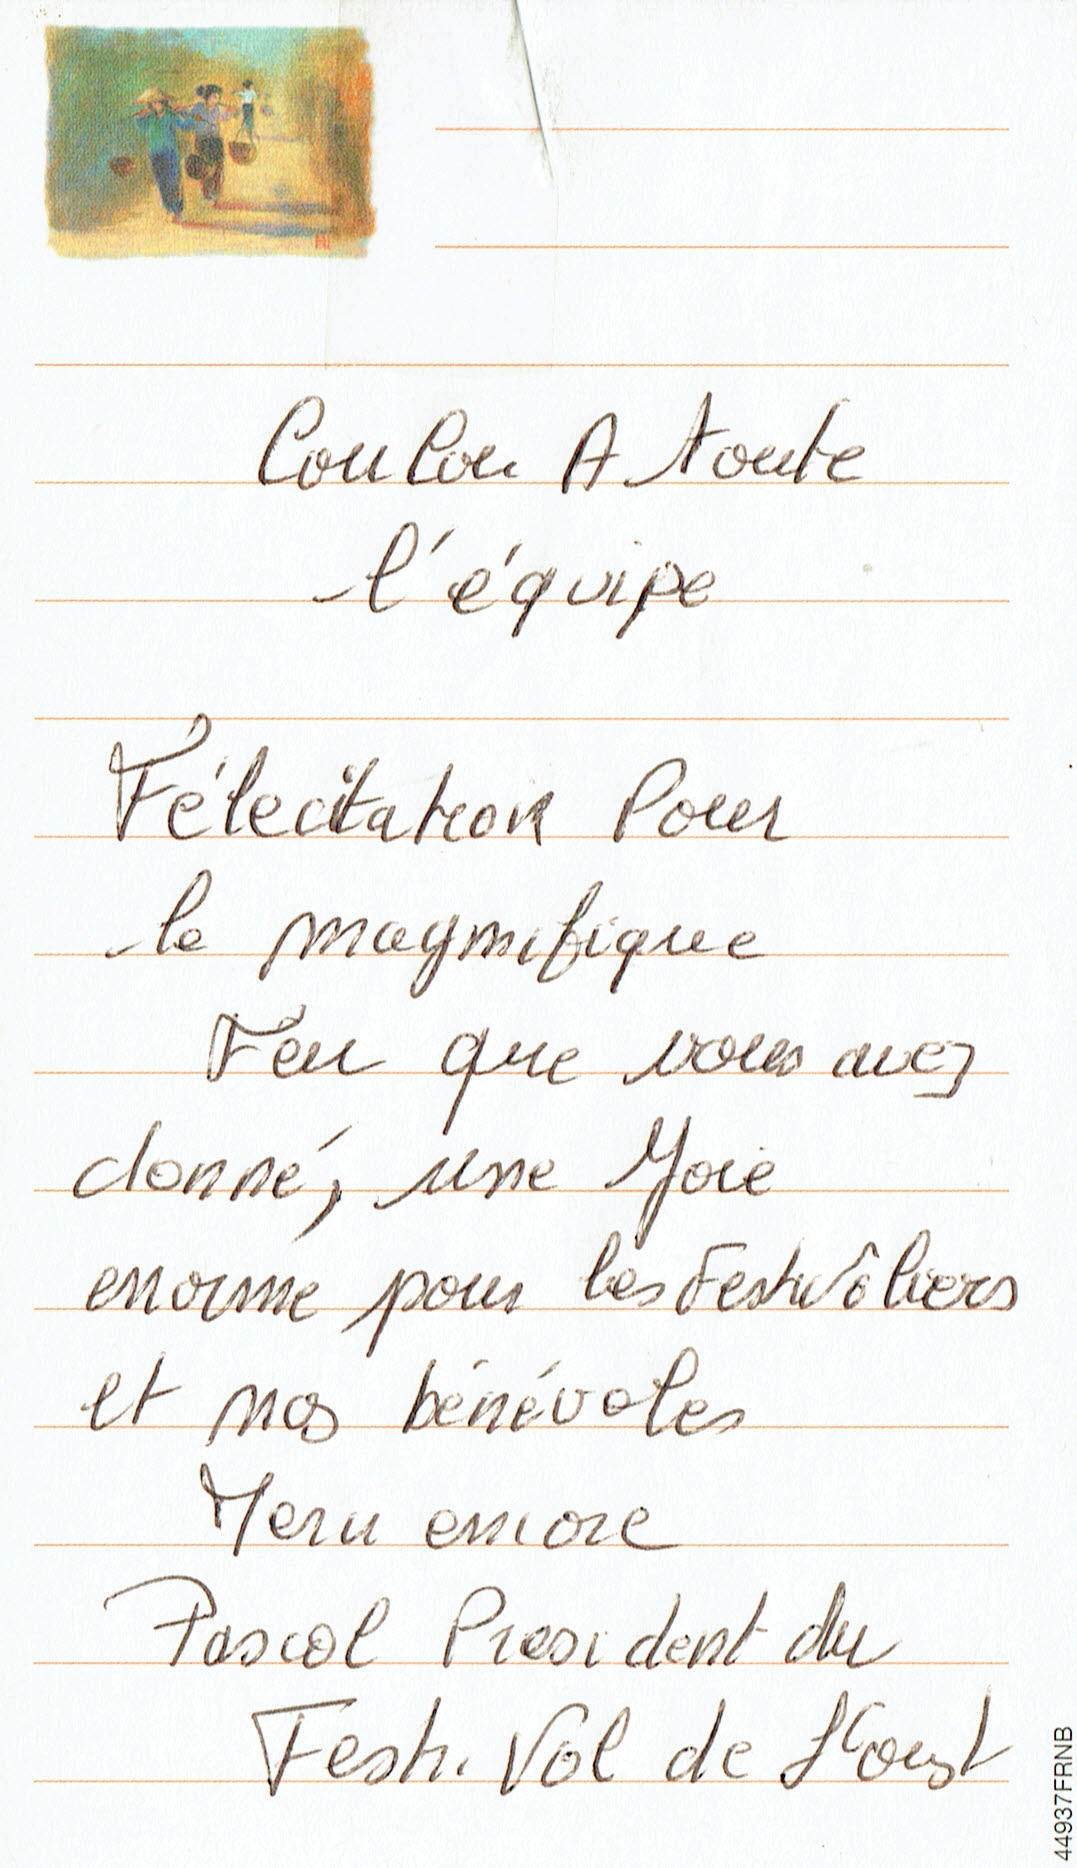 Coucou A toute
l'équipe
Félecitation Pour
le magnifique
Feu que vous avez
donné, une Joie
enorme pour les Festivôliers
et nos bénévoles
Merci encore
Pascal President du
Festi.Vol de
44937FRNB